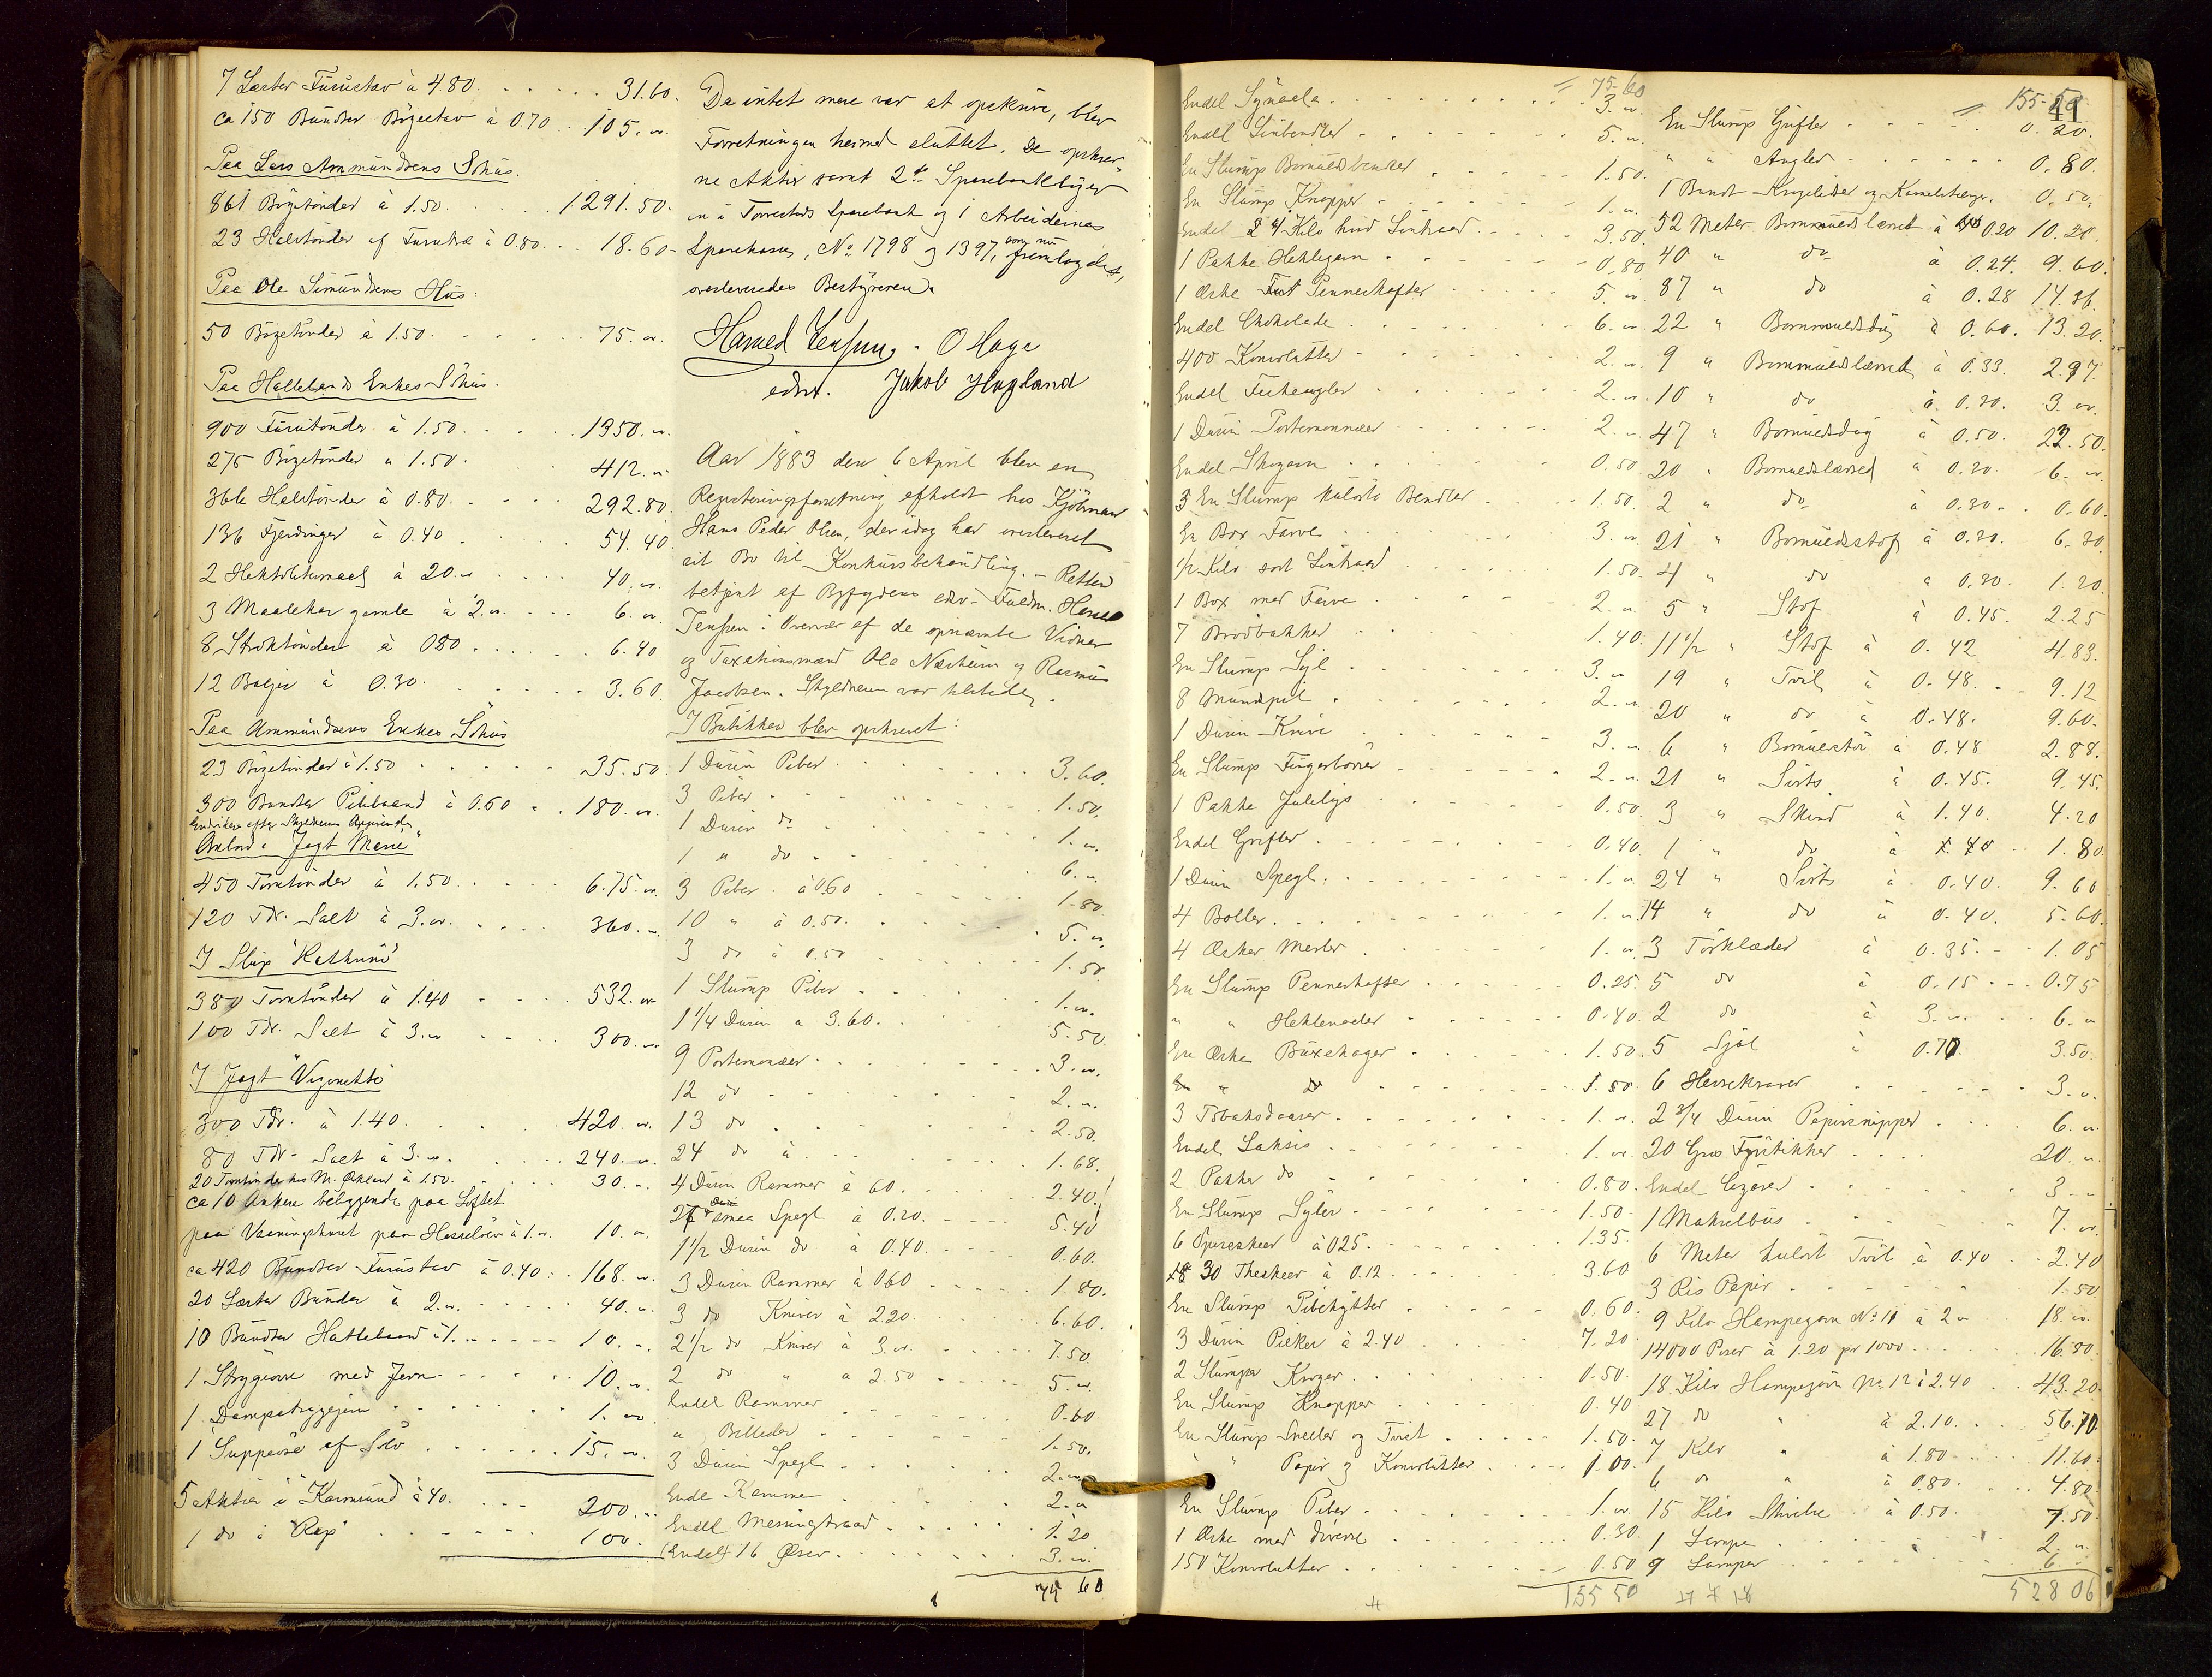 7 Læster Furustav à 4.80. 31.60.
ca 150 Bundter Bøgestav à 0.70 105.
Paa Lars Ammundsens Söhus.
861 Bögetönder à 1.50. 1291.50.
23 Halvtönder af Furutræ à 0.80. 18.60
Paa Ole Simundsens Hus:
50 Bögetönder à 1.50. 75.
Paa Hallelands Enkes Söhus.
900 Furutönder à 1.50. 1350.
275 Bögetönder à 1.50. 412.
366 Halvtönder à 0.80. 292.80.
136 Fjerdinger à 0.40. 54.40
2 Hektolitermaal à 20. 40.
3 Maalekar gamle à 2. 6.
8 Strötönder à 080 6.40
12 Baljer à 0.30. 3.60.
Paa Ammundsens Enkes Söhus
23 Bögetönder à 1.50 35.50.
300 Bundter Pilebaand à 0.60 180.
Ombord i Jagt "Marie"
450 Tomtönder à 1.50. 675.
120 Tdr. Salt à 3. 360.
I Slup "Kathrine"
380 Tomtönder à 1.40 532.
100 Tdr. Salt à 3. 300.
I Jagt "Vignette"
300 Tdr. à 1.40. 420.
80 Tdr. Salt à 3. 240.
20 Tomtönder hos M. Økland à 1.50. 30.
ca 10 Ankere beliggende paa Loftet
paa Vaaningshuset paa Hasselöen à 1. 10.
ca 420 Bundter Furustav à 0.40 168.
20 Læster Bunder à 2. 40.
10 Bundter Hasselbaand à 1. 10.
1 Strygeovn med Jern 10.
1 Dampstrygejern 1.
1 Suppeöse af Sölv 15.
5 Aktier i "Karmsund" à 40. 200.
1 do i "Rap" 100.
Da intet mere var at opskrive, blev
Forretningen hermed sluttet. De opskrev-
ne Aktier samt 2de Sparebankböger
en i Torvestads Sparebank og i Arbeidernes
Sparekasse, No 1798 og 1397, som nu fremlagdes,
overleveredes Bestyreren.
Harald Jensen. O Hage
edsv. Jakob Hagland
Aar 1883 den 6 April blev en
Registreringsforretning afholdt hos Kjöbmand
Hans Peder Olsen, der idag har overleveret
sit Bo til Konkursbehandling. - Retten
betjent af Byfogdens edsv. Fuldm. Harald
Jensen i Overvær af de opnævnte Vidner
og Taxationsmænd Ole Næsheim og Rasmus
Jacobsen. Skyldneren var tilstede.
I Butikken blev opskrevet:
1 Dusin Piber 3.60.
3 Piber 1.50.
1 Dusin do 1.
1 " do 6.
3 Piber à 0.60 1.80.
10 " à 0.50. 5.
3 do à 0.50 1.50
1 Slump Piber 1.
1 1/4 Dusin à 3.60. 5.50.
9 Portemonæer 3.
12 do 2.
13 do 2.50.
24 do à 1.68.
4 Dusin Rammer à 60. 2.40.
27 smaa Spegl à 0.20. 5.40
1 1/2 Dusin do à 0.40. 0.60.
3 Dusin Rammer à 0.60 1.80.
3 do Kniver à 2.20. 6.60.
2 1/2 do Kniver à 3. 7.50.
2 do " à 2.50 5.
Endel Rammer 0.60
" Billeder 1.50.
3 Dusin Spegl 2.
Endel Kamme 2.
Endel Messingtraad 1.20
(Endel) 16 Øser 3.
75 60
= 75-60
Endel Synaale 3.
Endel Linbendler 5.
En Slump Bomuldsbendler 1.50.
En Slump Knapper 1.
Endel 2 4 Kilo hvid Sintraad 3.50.
1 Pakke Heklegarn 0.80.
1 Æske Pennehefter 5.
Endel Chokolade 6.
400 Konvolutter 2.
Endel Fiskeangler 2.
1 Dusin Portemonnæer 2.
Endel Skogarn 0.50.
3 En Slump kulörte Bendler 1.50.
En Box Farve 3.
1/2 Kilo sort Sintraad 1.50.
1 Box med Farve 2.
7 Brödbakker 1.40.
En Slump Sejl 3.
8 Mundspil 2.
1 Dusin Knive 3.
En Slump Fingerbörer 2.
1 Pakke Julelys 0.50.
Endel Grifter 0.40.
1 Dusin Spegl. 1.
4 Boller 1.
4 Æsker Merler 1.
En Slump Pennehefter 0.25.
" " Heklenaaler 0.40.
En Æske Buxehager 1.50.
En " do 1.50
3 Tobaksdaaser 1.
Endel Sakse 1.
2 Pakker do 0.80.
En Slump Syler 1.50
6 Spiseskeer à 025. 1.35
18 30 Theskeer à 0.12 3.60
En Slump Pibehytter 0.60.
3 Dusin Pisker à 2.40 7.20
2 Slumper Kroger 0.50.
En Slump Knapper 0.40
En Slump Sneller og Tvist 1.50.
" " Papir og Konvolutter 1.00.
En Slump Piber 1.
1 Æske med diverse 0.30.
150 Konvolutter 0.50
155 50
41
= 155-50
En Slump Grifter 0.20.
" " Angler 0.80.
1 Bundt Krogelidser og Kamelstænger 0.50.
52 Meter Bommuldslærred à 0.20 10.20.
40 " do à 0.24. 9.60.
87 " do à 0.28 14.36.
22 " Bommuldsdug à 0.60. 13.20.
9 " Bommuldslærred à 0.33. 2.97.
10 " do à 0.30. 3.
47 " Bomuldsdug à 0.50. 23.50.
20 " Bomuldslærred à 0.30. 6.
2 " do à 0.30. 0.60.
21 " Bomuldsstof à 0.30. 6.30.
4 " do à 0.30. 1.20.
5 " Stof à 0.45. 2.25
11 1/2 " Stof à 0.42 4.83.
19 " Tvil à 0.48. 9.12
20 " do à 0.48. 9.60.
6 " Bomulstöi à 0.48 2.88.
21 " Sirts à 0.45. 9.45.
3 " Skind à 1.40. 4.20
1 " do à 1.80.
24 " Sirts à 0.40. 9.60
14 " do à 0.40. 5.60.
3 Törklæder à 0.35. 1.05
5 do à 0.15 0.75
2 do à 3. 6.
5 Sjal à 0.70. 3.50.
6 Herrekraver 3.
2 3/4 Dusin Papirsnipper 6.
20 Gros Fyrstikker 20.
Endel Cigarer 3
1 Makrelbus 7.
6 Meter kulört Tvil à 0.40 2.40
3 Ris Papir 1.50
9 Kilo Hampegarn No 11 à 2 18.
14000 Poser à 1.20 pr 1000 16.80.
18 Kilo Hampegarn No 12 à 2.40 43.20.
27 do " à 2.10. 56.70.
7 Kilo " à 1.80 11.60.
6 do " à 0.80. 4.80.
15 Kilo Stivelse à 0.50. 7.50.
1 Lampe 2.
9 Lamper 6.
528 06